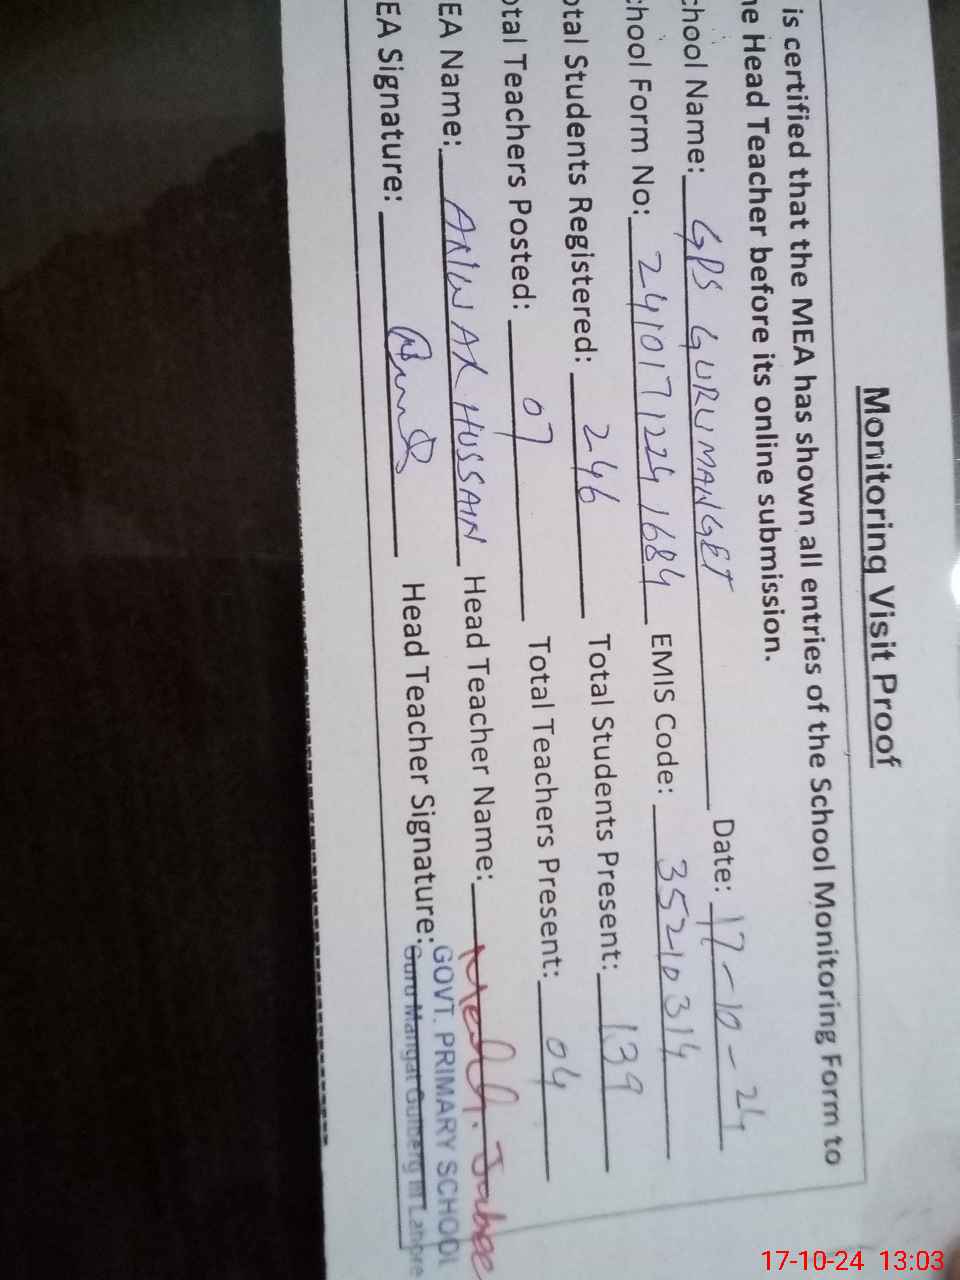 Monitoring Visit Proof
is certified that the MEA has shown all entries of the School Monitoring Form to
he Head Teacher before its online submission.
chool Name: GPS GURUMANGET Date: 17-10-24
chool Form No: 24101712241684 EMIS Code: 35210314
otal Students Registered: 246 Total Students Present: 139
otal Teachers Posted: 07 Total Teachers Present: 04
EA Name: ANWAR HUSSAIN Head Teacher Name:
EA Signature: Head Teacher Signature:
GOVT. PRIMARY SCHOOL
Guru Mangat Gulberg III Lahore
17-10-24 13:03